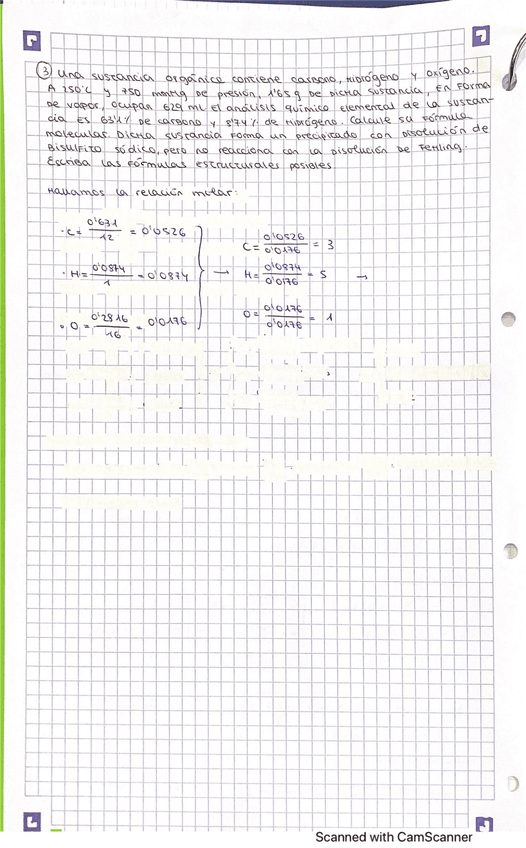 ③ Una sustancia orgánica contiene carbono, hidrógeno y oxígeno.
A 250°C y 750 mmHg de presión, 1'65 g de dicha sustancia, en forma
de vapor, ocupan 629 mL. El análisis químico elemental de la sustan-
cia es 63'1% de carbono y 8'74% de hidrógeno. Calcule su fórmula
molecular. Dicha sustancia forma un precipitado con disolución de
Bisulfito sódico, pero no reacciona con la disolución de Fehling.
Escriba las fórmulas estructurales posibles
Hallamos la relación molar:
· C = 0'631 / 12 = 0'0526
· H = 0'0874 / 1 = 0'0874 →
· O = 0'2816 / 16 = 0'0176
C = 0'0526 / 0'0176 = 3
H = 0'0874 / 0'0176 = 5 →
O = 0'0176 / 0'0176 = 1
Scanned with CamScanner